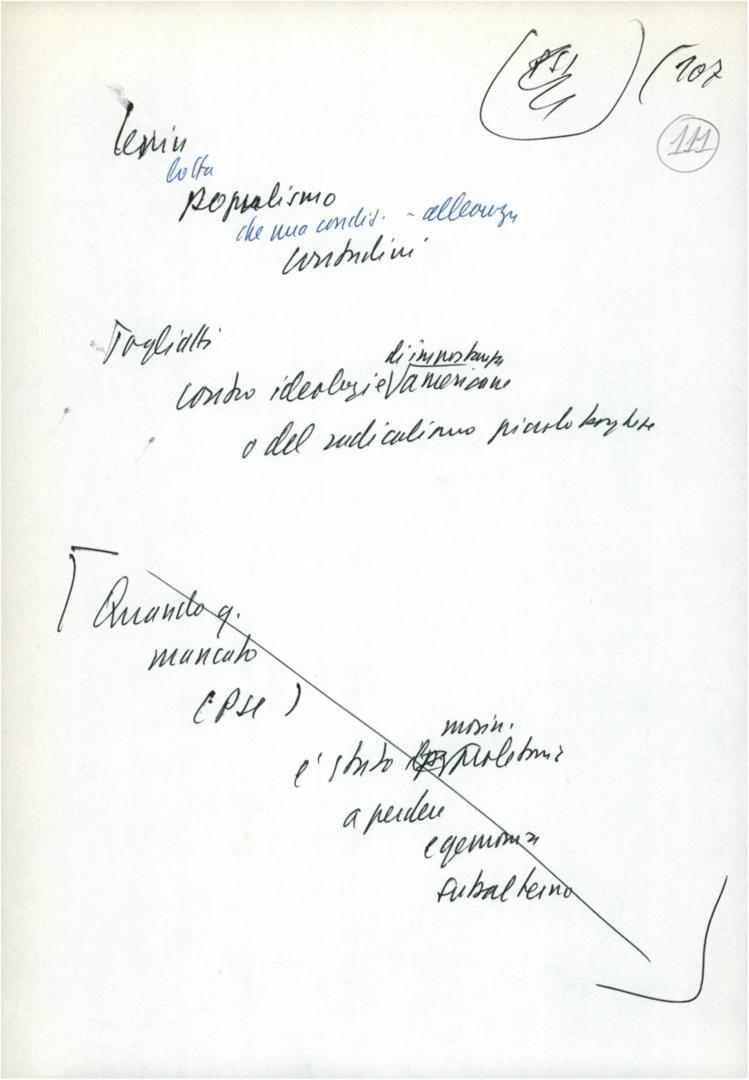 (107
111
Lenin
lotta
populismo
che una condiz. - alleanza
contadini
Togliatti
di importanza
contro ideologie americane
o del radicalismo piccolo borghese
Quando q.
mancato
(PSI)
movim.
e' stato proletario
a perdere
egemonia
subalterno